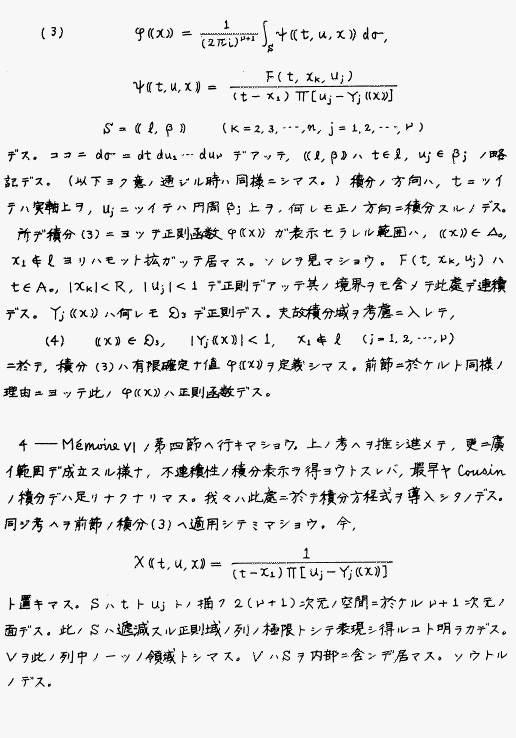 (3) φ((x)) = 1/(2πi)^{ν+1} ∫_S ψ((t, u, x)) dσ,
ψ((t, u, x)) = F(t, x_k, u_j) / (t−x_1) Π[u_j−Y_j((x))]
S = ((l, β)) (k=2, 3, ⋯, n, j=1, 2, ⋯, ν)
デス。ココニ dσ = dt du_1 ⋯ du_ν デアッテ, ((l, β)) ハ t∈l, u_j∈β_j ノ略
記デス。(以下ヨク意ノ通ジル時ハ同様ニシマス。) 積分ノ方向ハ, t ニツイ
テハ実軸上ヲ, u_j ニツイテハ円周 β_j 上ヲ, 何レモ正ノ方向ニ積分スルノデス。
所デ積分(3)ニヨッテ正則函数 φ((x)) ガ表示セラレル範囲ハ, ((x))∈Δ_0,
x_1∉l ヨリハモット拡ガッテ居マス。ソレヲ見マショウ。F(t, x_k, u_j) ハ
t∈A_0, |x_k|<R, |u_j|<1 デ正則デアッテ其ノ境界ヲモ含メテ此處デ連續
デス。Y_j((x)) ハ何レモ D_3 デ正則デス。夫故積分域ヲ考慮ニ入レテ,
(4) ((x))∈D_3, |Y_j((x))|<1, x_1∉l (j=1, 2, ⋯, ν)
ニ於テ, 積分(3)ハ有限確定ナ値 φ((x)) ヲ定義シマス。前節ニ於ケルト同様ノ
理由ニヨッテ此ノ φ((x)) ハ正則函数デス。
4 — Mémoire VI ノ第四節ヘ行キマショウ。上ノ考ヘヲ推シ進メテ, 更ニ廣
イ範囲デ成立スル様ナ, 不連續性ノ積分表示ヲ得ヨウトスレバ, 最早ヤ Cousin
ノ積分デハ足リナクナリマス。我々ハ此處ニ於テ積分方程式ヲ導入シタノデス。
同ジ考ヘヲ前節ノ積分(3)ヘ適用シテミマショウ。今,
X((t, u, x)) = 1 / (t−x_1) Π[u_j−Y_j((x))]
ト置キマス。S ハ t ト u_j トノ描ク 2(ν+1) 次元ノ空間ニ於ケル ν+1 次元ノ
面デス。此ノ S ハ遞減スル正則域ノ列ノ極限トシテ表現シ得ルコト明ラカデス。
V ヲ此ノ列中ノ一ツノ領域トシマス。V ハ S ヲ内部ニ含ンデ居マス。ソウトル
ノデス。